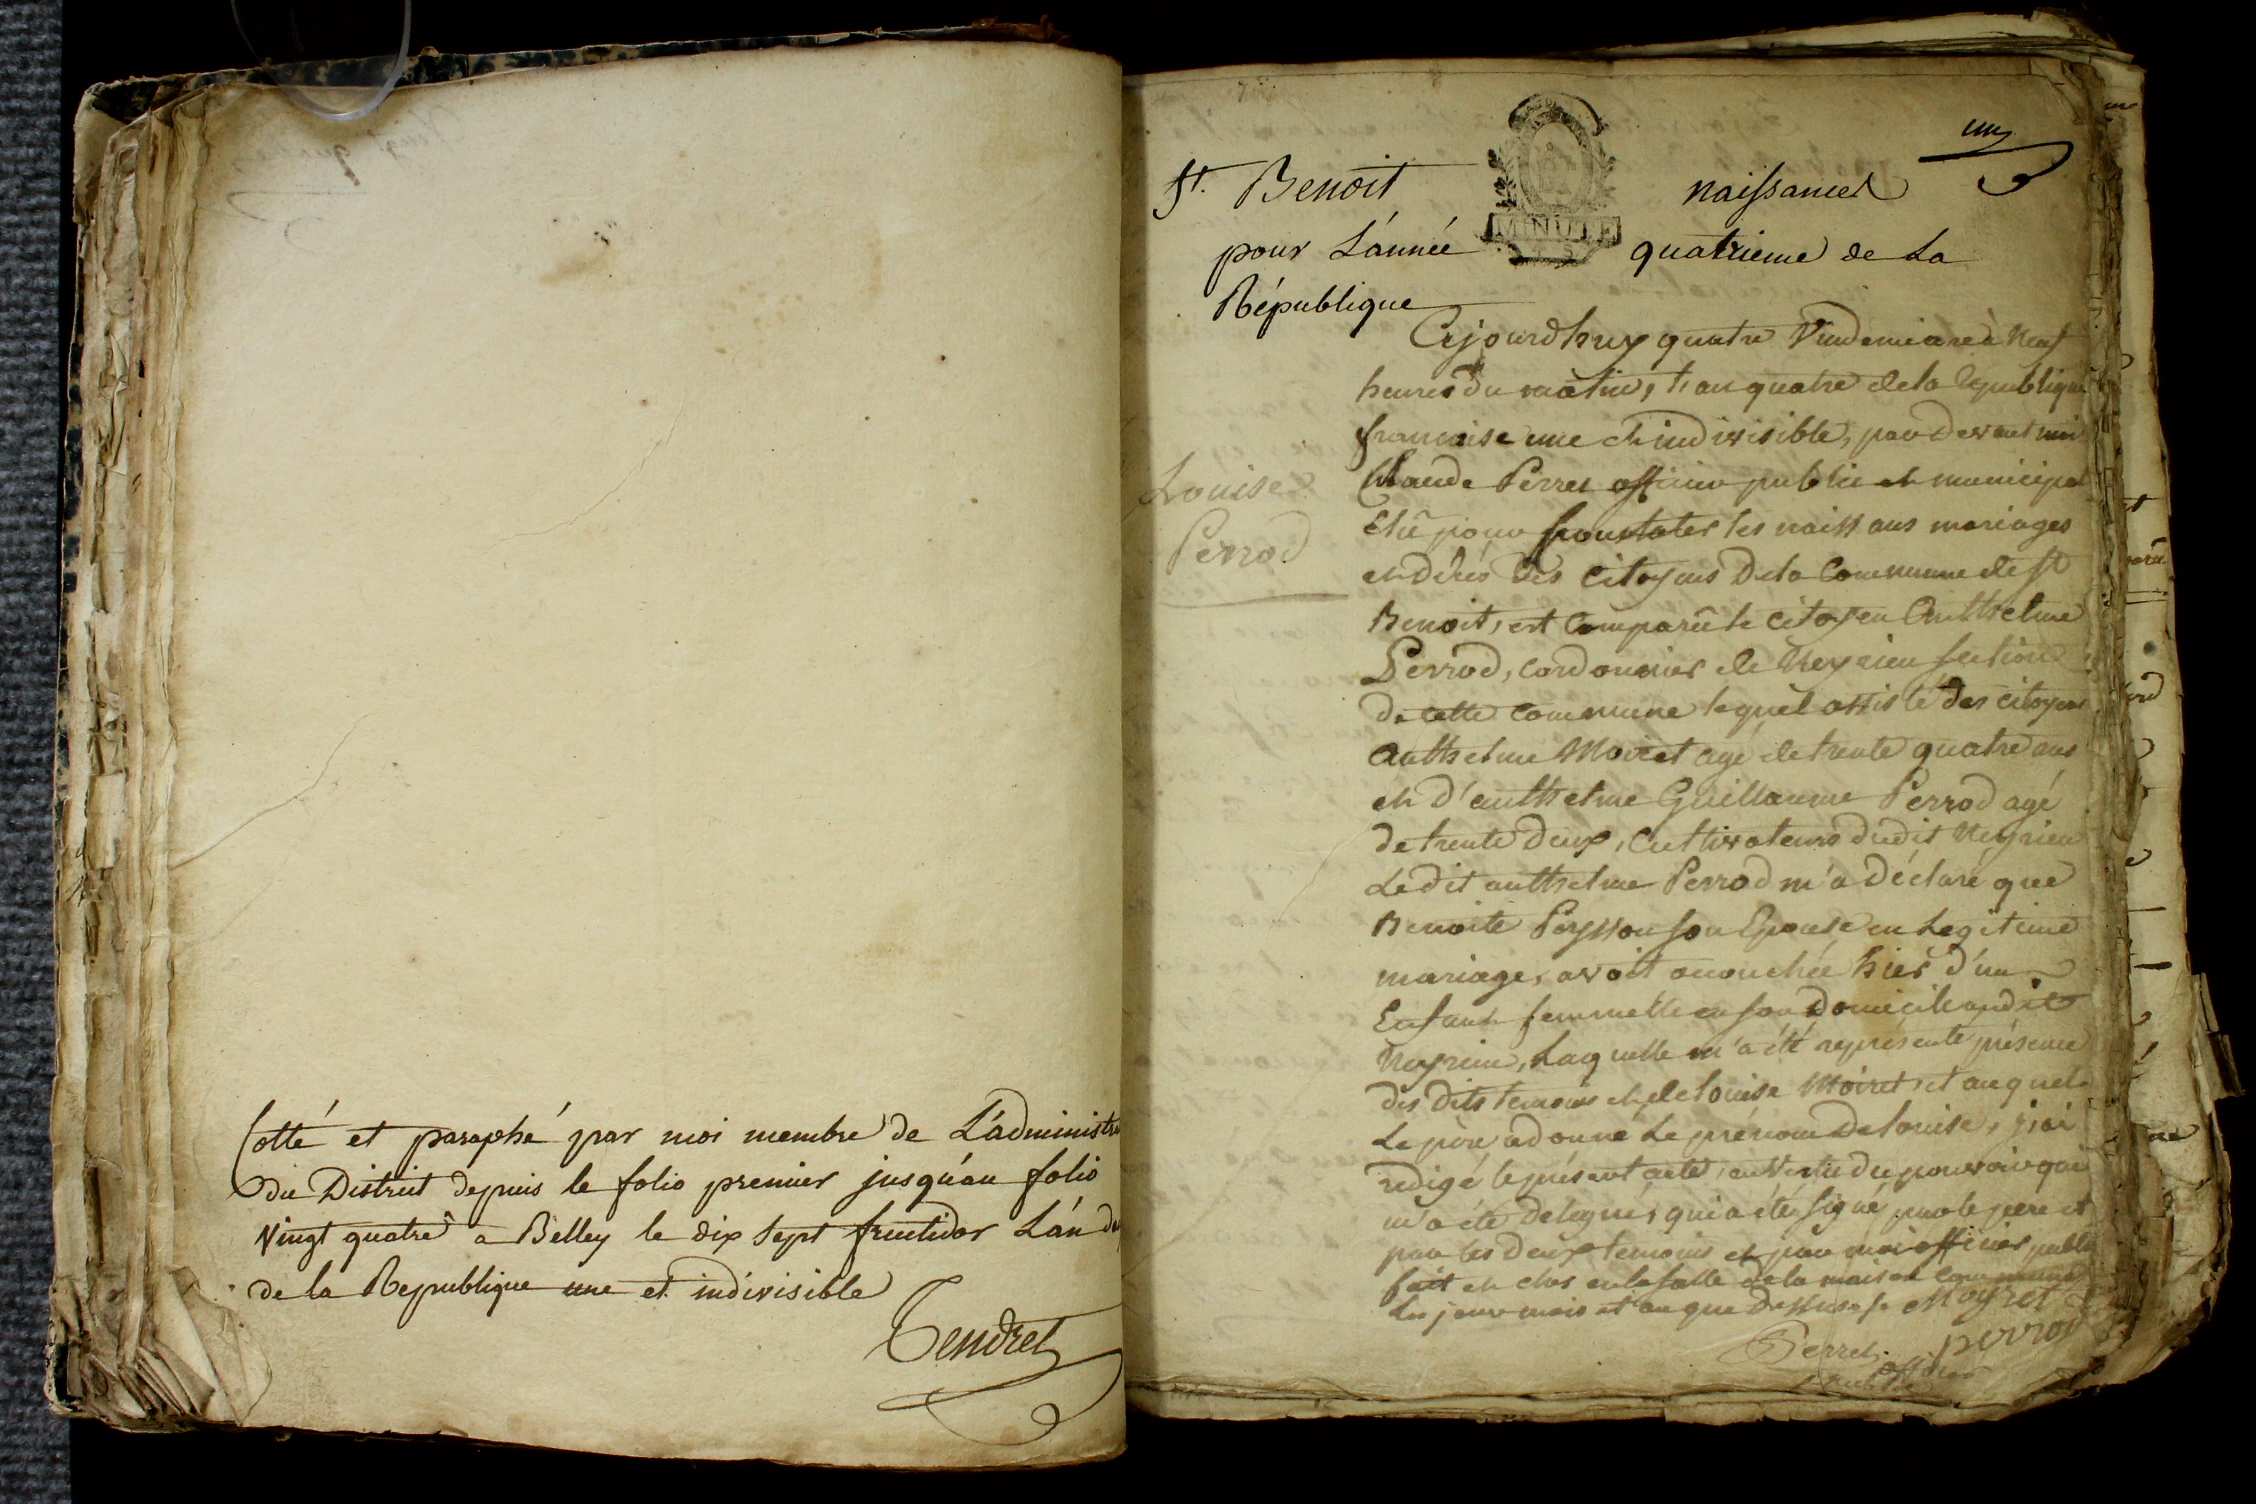 Cotté et paraphé par moi membre de L'administra
du District depuis le folio premier jusqu'au folio
vingt quatre a Belley le dix sept fructidor L'an
de la Republique une et indivisible
Tendret
un
St. Benoit naissances
MINUTE
pour L'année quatrieme de La
République
Louise
Perrod
Cejourdhuy quatre Vindemiaire à Neuf
heures du matin, l'an quatre de la Republique
francaise une et indivisible, par devant moi
Claude Perret officier public et municipal
Elû pour constater les naissans mariages
et décès des Citoyens de la Commune de St
Benoit, est Comparû le citoyen Anthelme
Perrod, cordonnier de Neyrieu section
de cette commune lequel assisté des citoyens
Anthelme Moiret agé de trente quatre ans
et d'anthelme Guillaume Perrod agé
de trente deux, Cultivateurs dudit Neyrieu
Ledit anthelme Perrod m'a déclaré que
Benoite Peysson son Epouse en Legitime
mariage, avoit accouchée hier d'un
Enfant femmelle en son domicile audit
Neyrieu, Laquelle m'a été représenté présence
des dits temoins et de louise Moiret, et auquel
Le père a donné Le prénom de louise, j'ai
redigé le présent acte, en vertu du pouvoir qui
m'a été delegué, qui a été signé par le père et
par les deux temoins et par moi officier public
fait et clos en la salle de la maison commune
Les jour mois et an que dessus Moyret
Perret perrod
officier
public